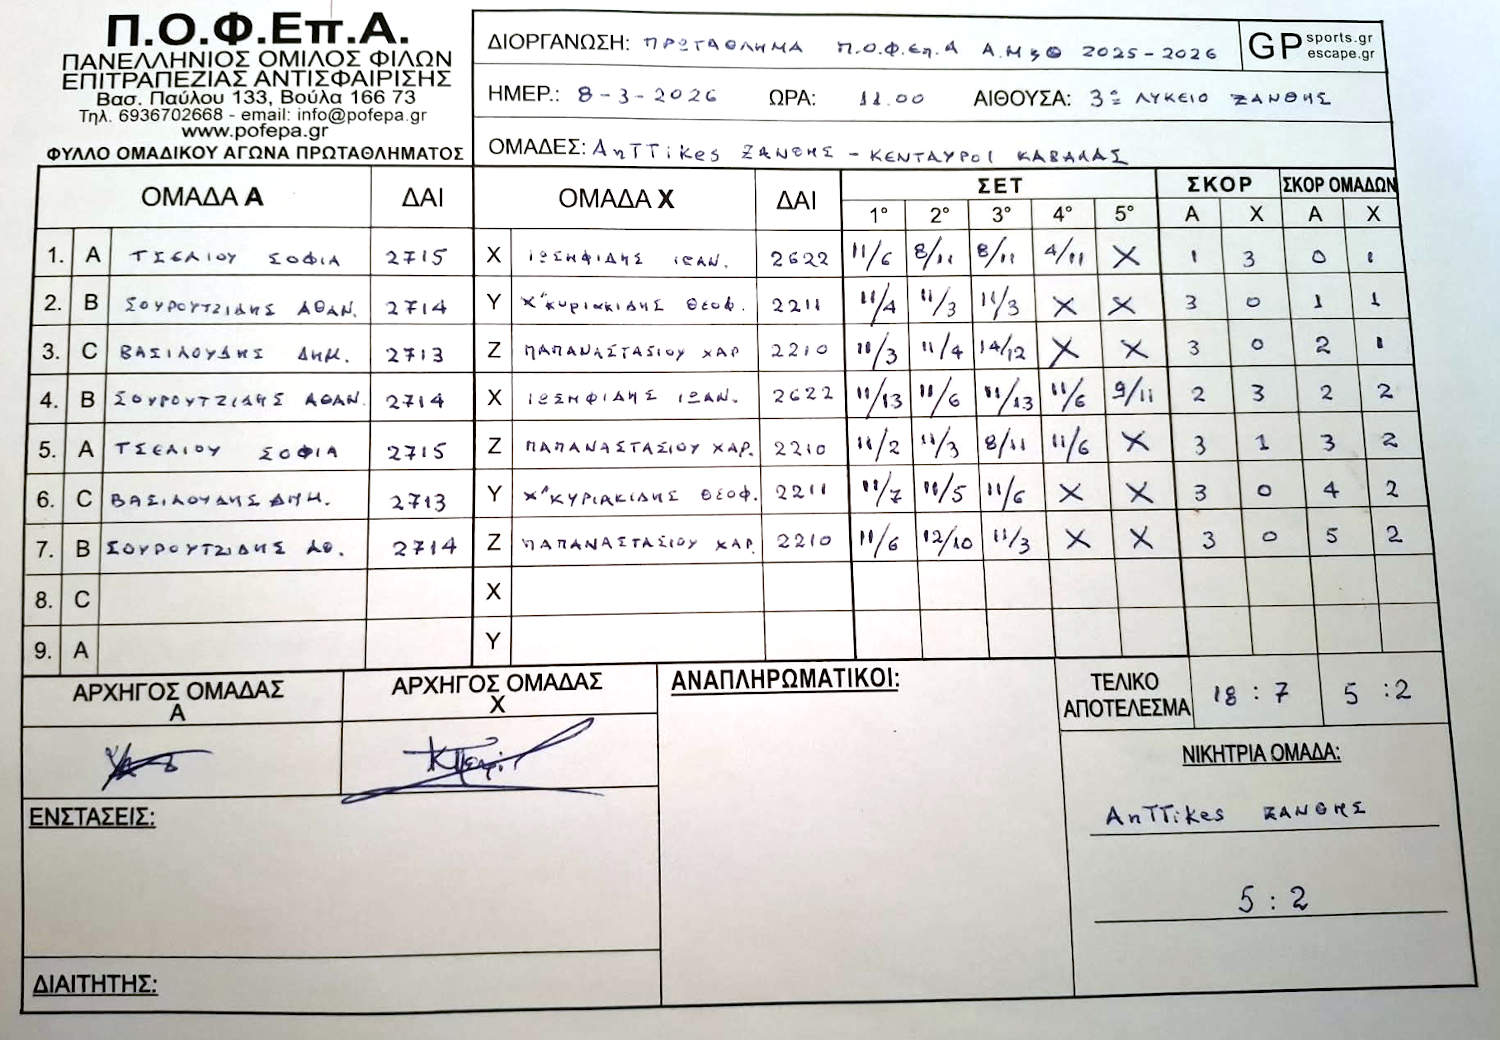 Π.Ο.Φ.Επ.Α.
ΠΑΝΕΛΛΗΝΙΟΣ ΟΜΙΛΟΣ ΦΙΛΩΝ
ΕΠΙΤΡΑΠΕΖΙΑΣ ΑΝΤΙΣΦΑΙΡΙΣΗΣ
Βασ. Παύλου 133, Βούλα 166 73
Τηλ. 6936702668 - email: info@pofepa.gr
www.pofepa.gr
ΦΥΛΛΟ ΟΜΑΔΙΚΟΥ ΑΓΩΝΑ ΠΡΩΤΑΘΛΗΜΑΤΟΣ
ΔΙΟΡΓΑΝΩΣΗ: ΠΡΩΤΑΘΛΗΜΑ Π.Ο.Φ.Επ.Α Α.Μ&Θ 2025-2026
GP sports.gr
escape.gr
ΗΜΕΡ.: 8-3-2026 ΩΡΑ: 11.00 ΑΙΘΟΥΣΑ: 3º ΛΥΚΕΙΟ ΞΑΝΘΗΣ
ΟΜΑΔΕΣ: AnTTikes ΞΑΝΘΗΣ - ΚΕΝΤΑΥΡΟΙ ΚΑΒΑΛΑΣ
ΟΜΑΔΑ Α ΔΑΙ ΟΜΑΔΑ Χ ΔΑΙ ΣΕΤ ΣΚΟΡ ΣΚΟΡ ΟΜΑΔΩΝ
1° 2° 3° 4° 5° Α Χ Α Χ
1. A ΤΣΕΛΙΟΥ ΣΟΦΙΑ 2715 X ΙΩΣΗΦΙΔΗΣ ΙΩΑΝ. 2622 11/6 8/11 8/11 4/11 X 1 3 0 1
2. B ΣΟΥΡΟΥΤΖΙΔΗΣ ΑΘΑΝ. 2714 Y Χ"ΚΥΡΙΑΚΙΔΗΣ ΘΕΟΦ. 2211 11/4 11/3 11/3 X X 3 0 1 1
3. C ΒΑΣΙΛΟΥΔΗΣ ΔΗΜ. 2713 Z ΠΑΠΑΝΑΣΤΑΣΙΟΥ ΧΑΡ 2210 11/3 11/4 14/12 X X 3 0 2 1
4. B ΣΟΥΡΟΥΤΖΙΔΗΣ ΑΘΑΝ. 2714 X ΙΩΣΗΦΙΔΗΣ ΙΩΑΝ. 2622 11/13 11/6 11/13 11/6 9/11 2 3 2 2
5. A ΤΣΕΛΙΟΥ ΣΟΦΙΑ 2715 Z ΠΑΠΑΝΑΣΤΑΣΙΟΥ ΧΑΡ. 2210 11/2 11/3 8/11 11/6 X 3 1 3 2
6. C ΒΑΣΙΛΟΥΔΗΣ ΔΗΜ. 2713 Y Χ"ΚΥΡΙΑΚΙΔΗΣ ΘΕΟΦ. 2211 11/7 11/5 11/6 X X 3 0 4 2
7. B ΣΟΥΡΟΥΤΖΙΔΗΣ ΑΘ. 2714 Z ΠΑΠΑΝΑΣΤΑΣΙΟΥ ΧΑΡ. 2210 11/6 12/10 11/3 X X 3 0 5 2
8. C X
9. A Y
ΑΡΧΗΓΟΣ ΟΜΑΔΑΣ
Α
ΑΡΧΗΓΟΣ ΟΜΑΔΑΣ
Χ
ΑΝΑΠΛΗΡΩΜΑΤΙΚΟΙ:
ΤΕΛΙΚΟ
ΑΠΟΤΕΛΕΣΜΑ 18 : 7 5 : 2
ΝΙΚΗΤΡΙΑ ΟΜΑΔΑ:
AnTTikes ΞΑΝΘΗΣ
5 : 2
ΕΝΣΤΑΣΕΙΣ:
ΔΙΑΙΤΗΤΗΣ: